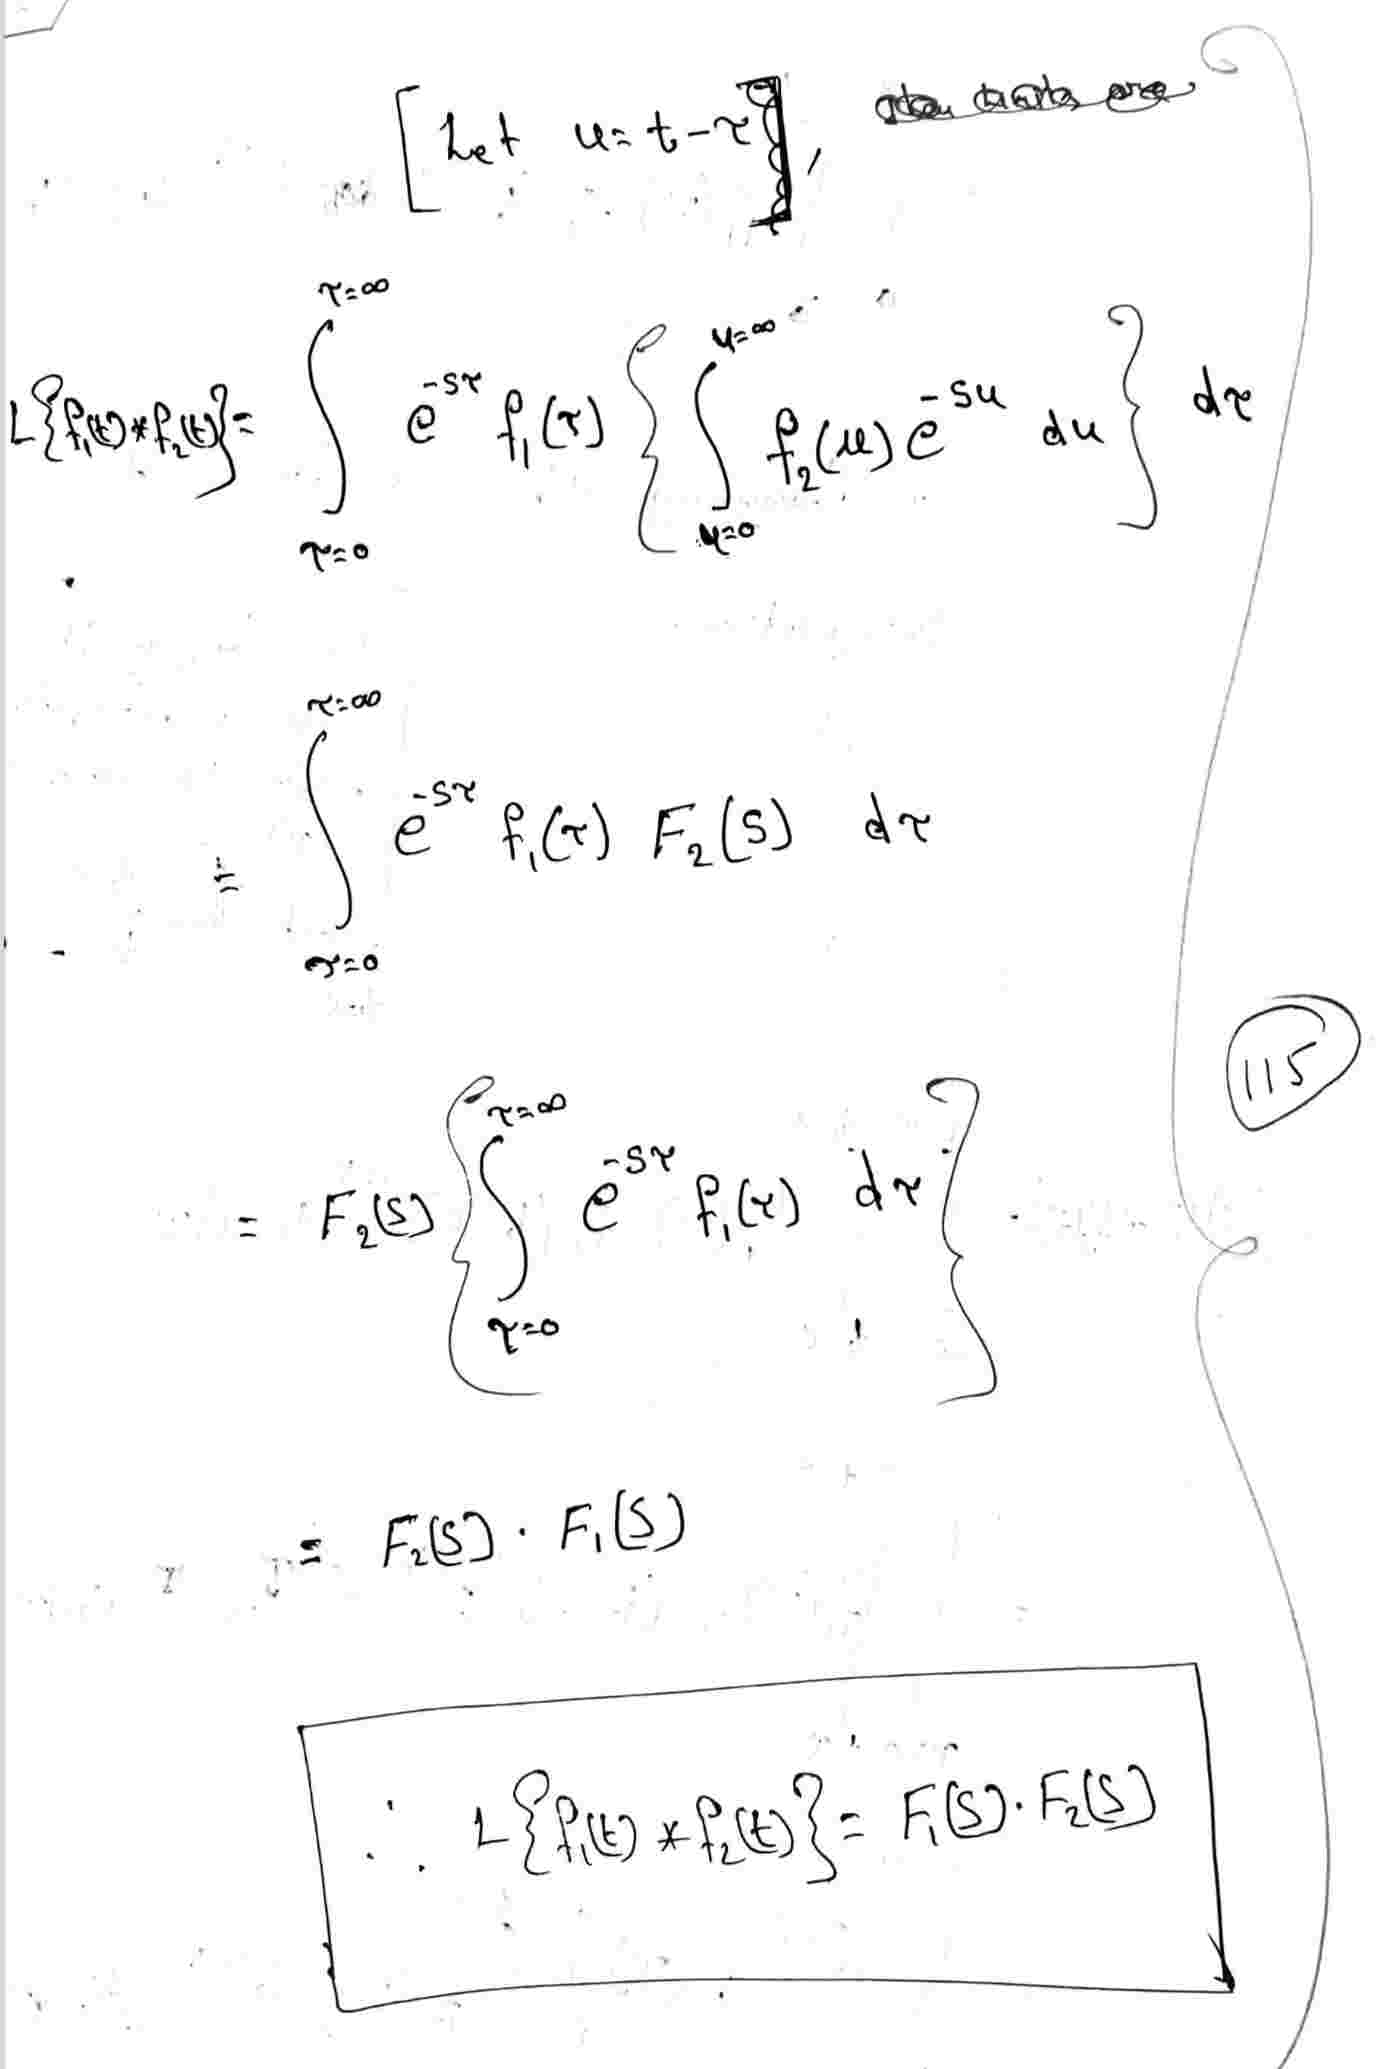 [Let u = t - τ],
L{f₁(t) * f₂(t)} = ∫_{τ=0}^{τ=∞} e^{-sτ} f₁(τ) { ∫_{u=0}^{u=∞} f₂(u) e^{-su} du } dτ
= ∫_{τ=0}^{τ=∞} e^{-sτ} f₁(τ) F₂(s) dτ
115
= F₂(s) { ∫_{τ=0}^{τ=∞} e^{-sτ} f₁(τ) dτ }
= F₂(s) · F₁(s)
∴ L{f₁(t) * f₂(t)} = F₁(s) · F₂(s)